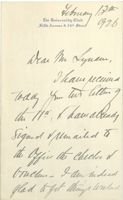 The University Club
Fifth Avenue & 54th Street
February 12th
1926
Dear Mr Lynam
I have received
today your two letters of
the 11th. I have already
signed & remailed to
the Office the checks &
vouchers - I am indeed
glad to get things